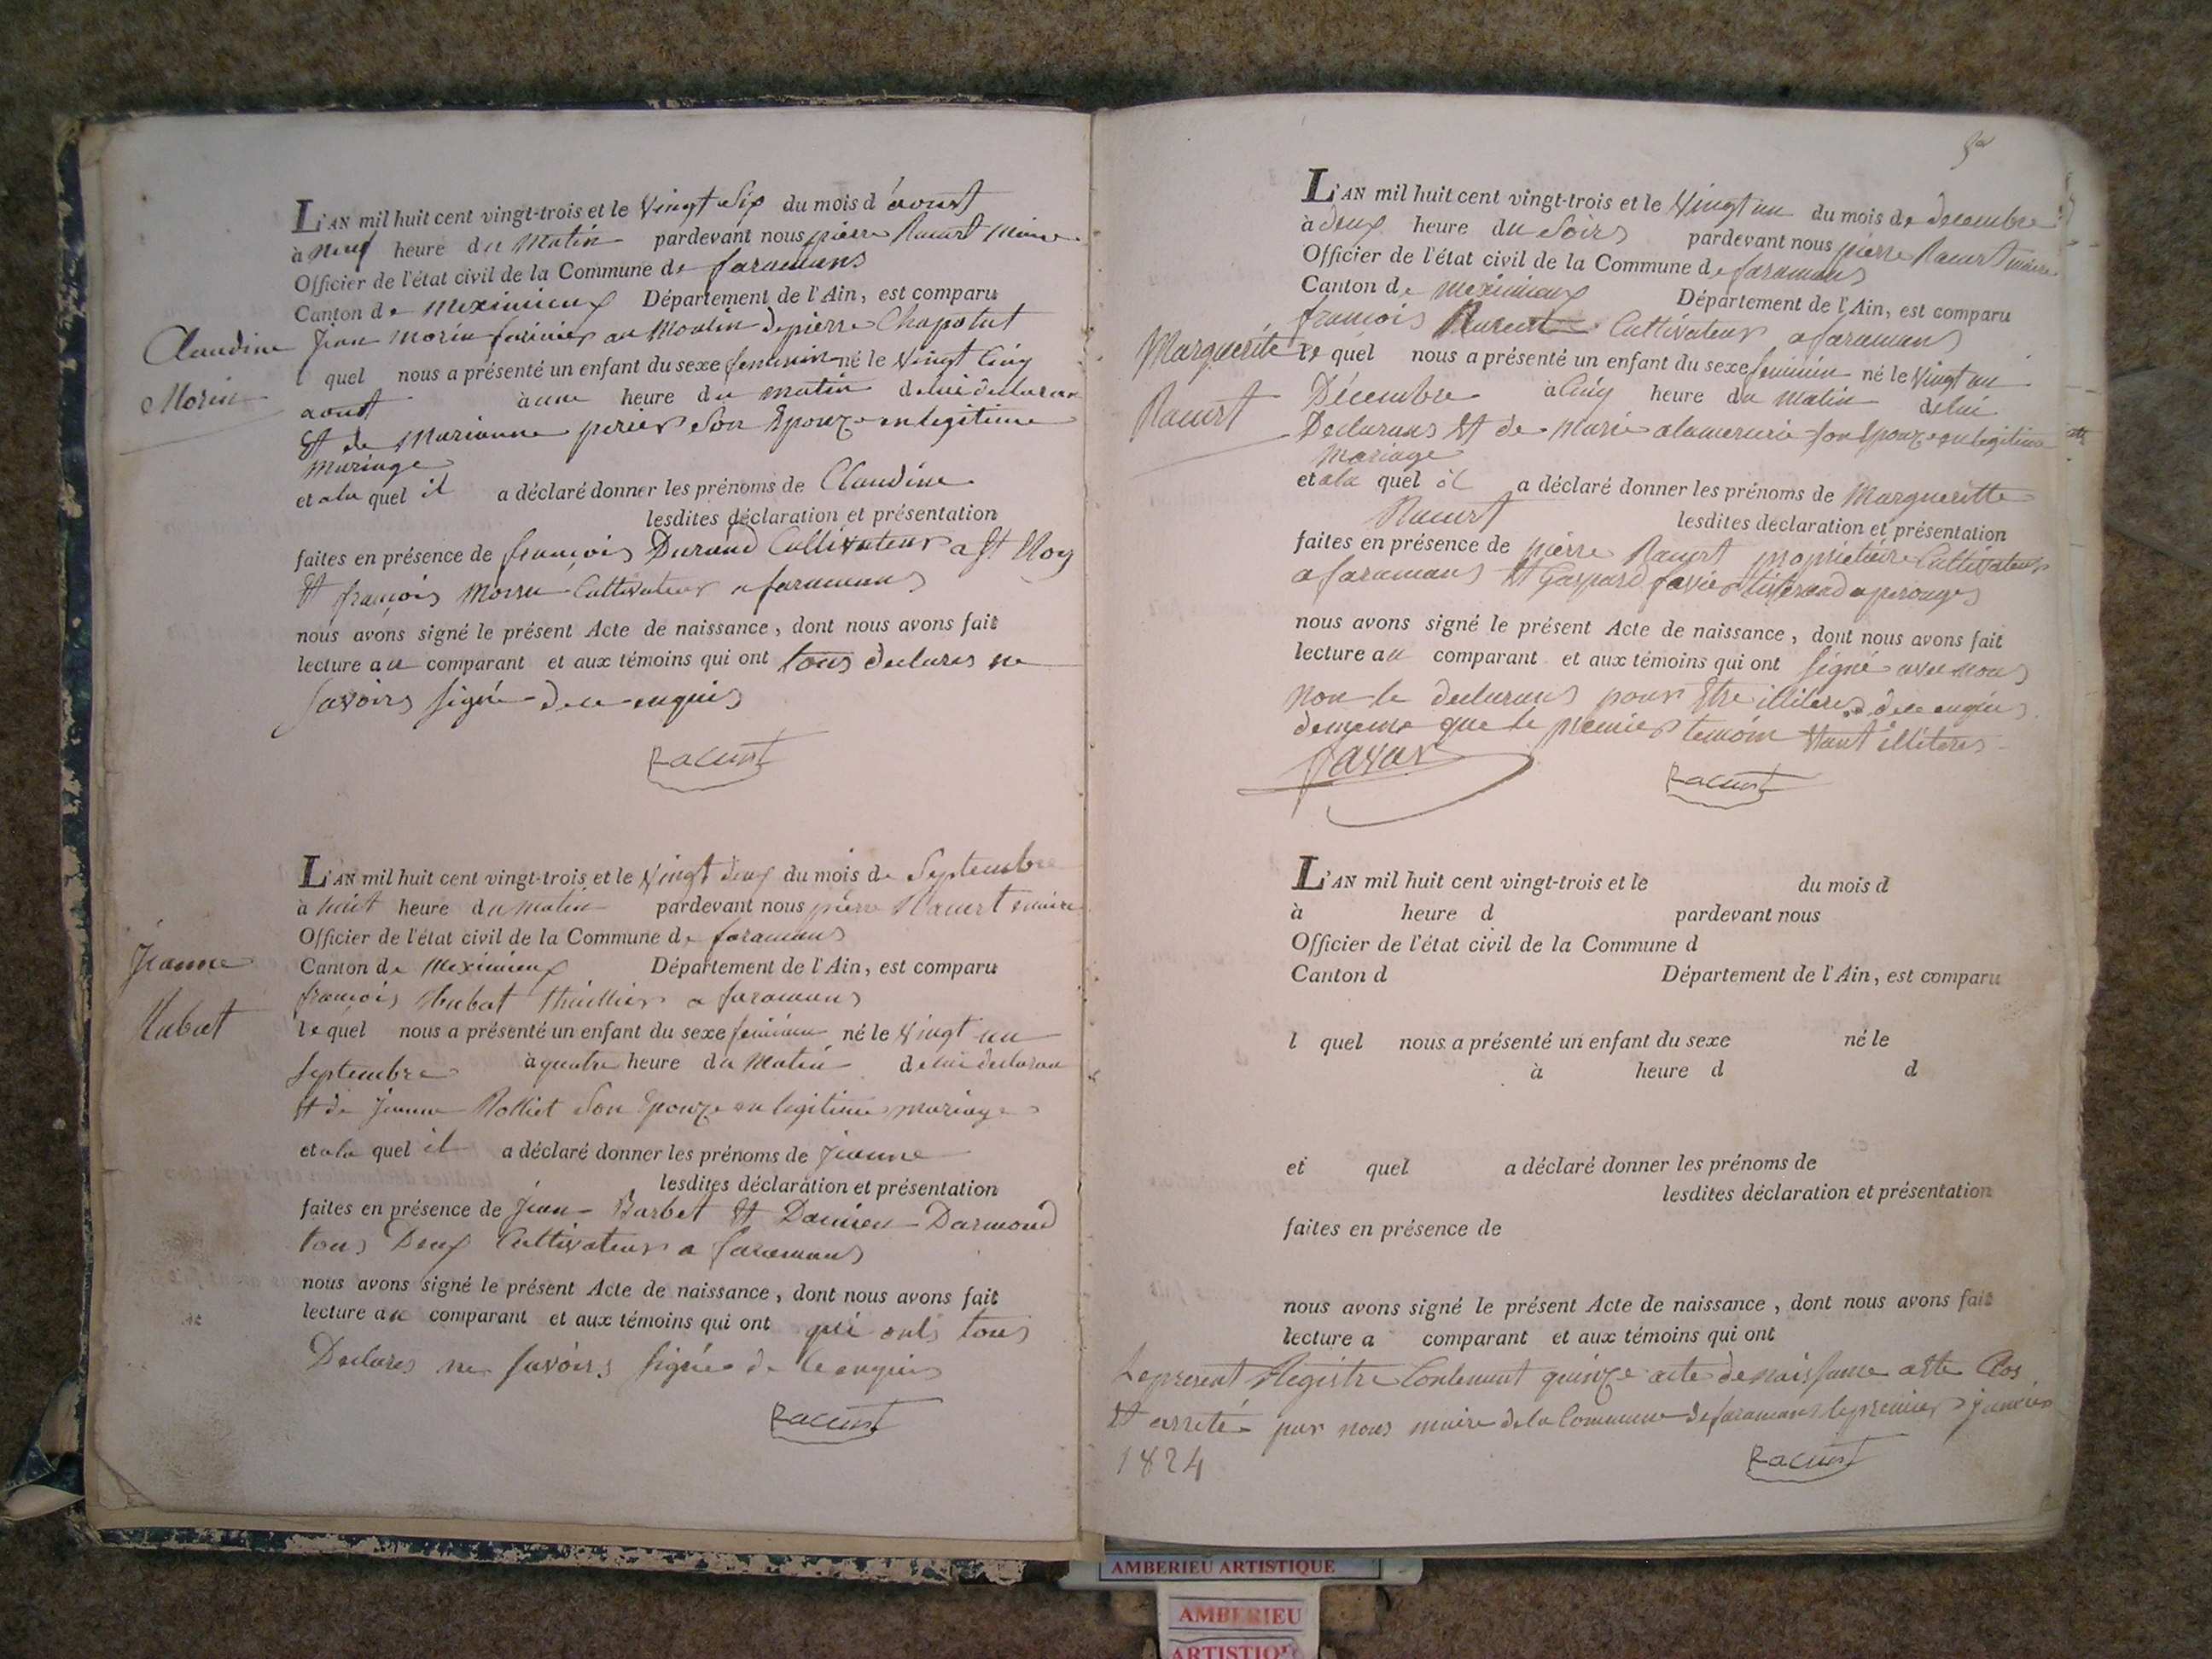 Claudine
Morin
L'AN mil huit cent vingt-trois et le vingt six du mois d'aoust
à neuf heure du matin pardevant nous pierre Racurt maire
Officier de l'état civil de la Commune de faramans
Canton de Meximieux Département de l'Ain, est comparu
Jean Morin farinier au Moulin de pierre Chapotut
l quel nous a présenté un enfant du sexe feminin né le vingt cinq
aoust à une heure du matin de lui declaran
Et de Marianne perier Son Epouze en legitime
Mariage
et a la quel il a déclaré donner les prénoms de Claudine
lesdites déclaration et présentation
faites en présence de françois Durand Cultivateur a St Eloy
Et françois Cultivateur a faramans
nous avons signé le présent Acte de naissance, dont nous avons fait
lecture au comparant et aux témoins qui ont tous declares ne
Savoirs signé de ce enquis
Racurt
Jeanne
Rubat
L'AN mil huit cent vingt-trois et le vingt deux du mois de Septembre
à huit heure du matin pardevant nous pierre Racurt maire
Officier de l'état civil de la Commune de faramans
Canton de Meximieux Département de l'Ain, est comparu
françois Rubat a faramans
le quel nous a présenté un enfant du sexe feminin né le vingt un
Septembre à quatre heure du matin de lui declaran
Et de Jeanne Rolliet Son Epouze en legitime mariage
et a la quel il a déclaré donner les prénoms de Jeanne
lesdites déclaration et présentation
faites en présence de Jean Barbet Et Damien Darmond
tous Deux Cultivateur a faramans
nous avons signé le présent Acte de naissance, dont nous avons fait
lecture au comparant et aux témoins qui ont qui onts tous
Declares ne Savoirs signé de ce enquis
Racurt
Marguerite
Racurt
L'AN mil huit cent vingt-trois et le vingt un du mois de decembre
à deux heure du Soirs pardevant nous pierre Racurt maire
Officier de l'état civil de la Commune de faramans
Canton de meximieux Département de l'Ain, est comparu
françois Racurt Cultivateur a faramans
le quel nous a présenté un enfant du sexe feminin né le vingt un
Décembre à cinq heure du matin de lui
Declarans Et de Marie son Epouze en legitime
Mariage
et a la quel il a déclaré donner les prénoms de Margueritte
Racurt lesdites déclaration et présentation
faites en présence de pierre Racurt proprietaire Cultivateur
a faramans Et Gaspard tisserand a perouges
nous avons signé le présent Acte de naissance, dont nous avons fait
lecture au comparant et aux témoins qui ont signé avec nous
non le declarans pour Etre illiteres de ce enquis
de meme que le premier temoin Etant illiteres
Racurt
L'AN mil huit cent vingt-trois et le du mois d
à heure d pardevant nous
Officier de l'état civil de la Commune d
Canton d Département de l'Ain, est comparu
l quel nous a présenté un enfant du sexe né le
à heure d d
et quel a déclaré donner les prénoms de
lesdites déclaration et présentation
faites en présence de
nous avons signé le présent Acte de naissance, dont nous avons fait
lecture a comparant et aux témoins qui ont
Le present Registre Contenant quinze acte de naissance a Ete Clos
Et arreté par nous maire de la Commune de faramans le premier janvier
1824
Racurt
AMBERIEU ARTISTIQUE
AMBERIEU
ARTISTIQUE